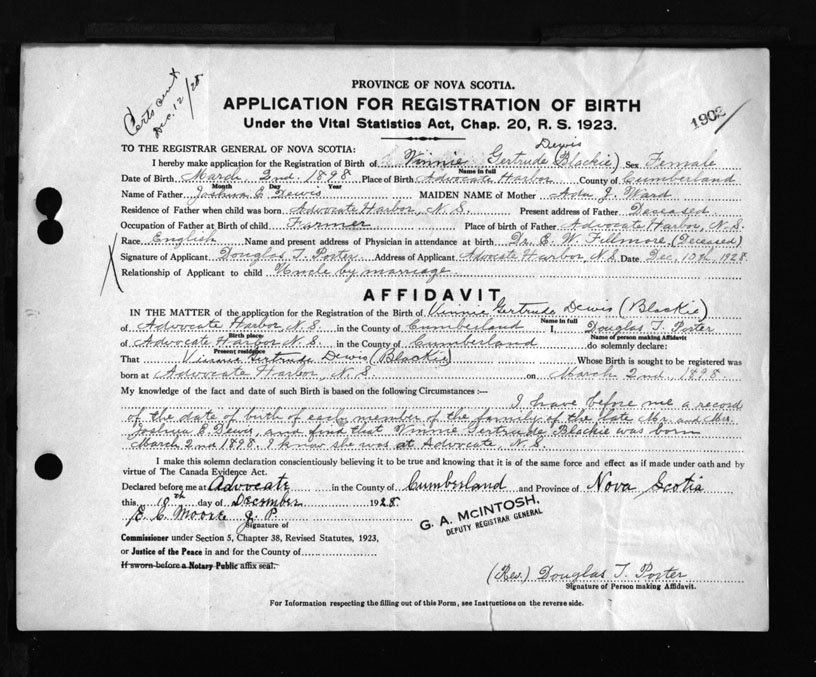 Certs sent
Dec. 12/28.
1902/
PROVINCE OF NOVA SCOTIA.
APPLICATION FOR REGISTRATION OF BIRTH
Under the Vital Statistics Act, Chap. 20, R. S. 1923.
TO THE REGISTRAR GENERAL OF NOVA SCOTIA:
Dewis
I hereby make application for the Registration of Birth of Vinnie Gertrude (Blackie) Sex Female
Name in full
Date of Birth March 2nd 1898 Place of Birth Advocate Harbor County of Cumberland
Month Day Year
Name of Father Joshua E. Dewis MAIDEN NAME of Mother Ada J. Ward
Residence of Father when child was born Advocate Harbor, N. S. Present address of Father Deceased
Occupation of Father at Birth of child Farmer Place of birth of Father Advocate Harbor, N. S.
Race English Name and present address of Physician in attendance at birth Dr. E. W. Fillmore (Deceased)
Signature of Applicant Douglas T. Porter Address of Applicant Advocate Harbor, N.S. Date Dec. 10th, 1928.
Relationship of Applicant to child Uncle by marriage
AFFIDAVIT
IN THE MATTER of the application for the Registration of the Birth of Vinnie Gertrude Dewis (Blackie)
Name in full
of Advocate Harbor N. S. in the County of Cumberland I, Douglas T. Porter
Birth place Name of person making Affidavit
of Advocate Harbor N. S. in the County of Cumberland do solemnly declare:
Present residence
That Vinnie Gertrude Dewis (Blackie) Whose Birth is sought to be registered was
born at Advocate Harbor, N. S on March 2nd, 1898.
My knowledge of the fact and date of such Birth is based on the following Circumstances :—
I have before me a record
of the date of birth of each member of the family of the late Mr. and Mrs.
Joshua E. Dewis, and find that Vinnie Gertrude Blackie was born
March 2nd 1898. I know she was at Advocate, N. S.
I make this solemn declaration conscientiously believing it to be true and knowing that it is of the same force and effect as if made under oath and by
virtue of The Canada Evidence Act.
Declared before me at Advocate in the County of Cumberland and Province of Nova Scotia
this 10th day of December 1928.
E. C. Moore J. P.
Signature of
G. A. McINTOSH,
DEPUTY REGISTRAR GENERAL
Commissioner under Section 5, Chapter 38, Revised Statutes, 1923,
or Justice of the Peace in and for the County of
If sworn before a Notary Public affix seal.
(Rev.) Douglas T. Porter
Signature of Person making Affidavit.
For Information respecting the filling out of this Form, see Instructions on the reverse side.